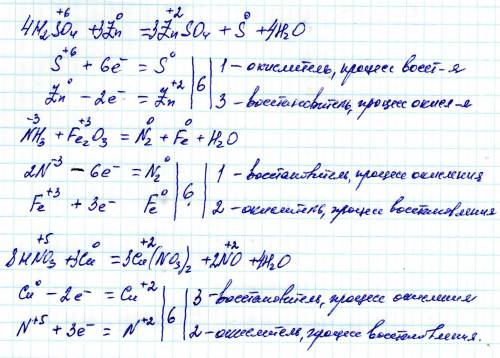 4H₂S⁺⁶O₄ + 3Zn⁰ = 3Zn⁺²SO₄ + S⁰ + 4H₂O
S⁺⁶ + 6e⁻ = S⁰ | 6 | 1 - окислитель, процесс восст-я
Zn⁰ - 2e⁻ = Zn⁺² | 3 - восстановитель, процесс окисл-я
N⁻³H₃ + Fe₂⁺³O₃ = N₂⁰ + Fe⁰ + H₂O
2N⁻³ - 6e⁻ = N₂⁰ | 6 | 1 - восстановитель, процесс окисления
Fe⁺³ + 3e⁻ Fe⁰ | 2 - окислитель, процесс восстановления
8HN⁺⁵O₃ + 3Cu⁰ = 3Cu⁺²(NO₃)₂ + 2N⁺²O + 4H₂O
Cu⁰ - 2e⁻ = Cu⁺² | 6 | 3 - восстановитель, процесс окисления
N⁺⁵ + 3e⁻ = N⁺² | 2 - окислитель, процесс восстановления.